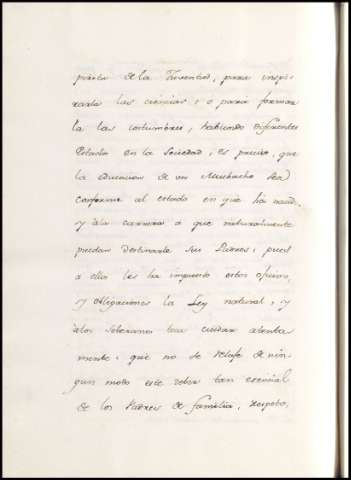 puesta de la Juventud, para inspi-
rarla las ciencias, o para formar
la las costumbres, habiendo diferentes
Estados en la Sociedad, es preciso, que
la educacion de un Muchacho sea
conforme al estado en que ha nacido,
y ála carrera a que naturalmente
puedan destinarle sus Padres; pues
a ellos les ha impuesto estos oficios,
y obligaciones la Ley natural, y
álos Soberanos toca cuidar atenta
mente, que no se relaje de nin-
gun modo este deber tan esencial
de los Padres de familia, respeto,